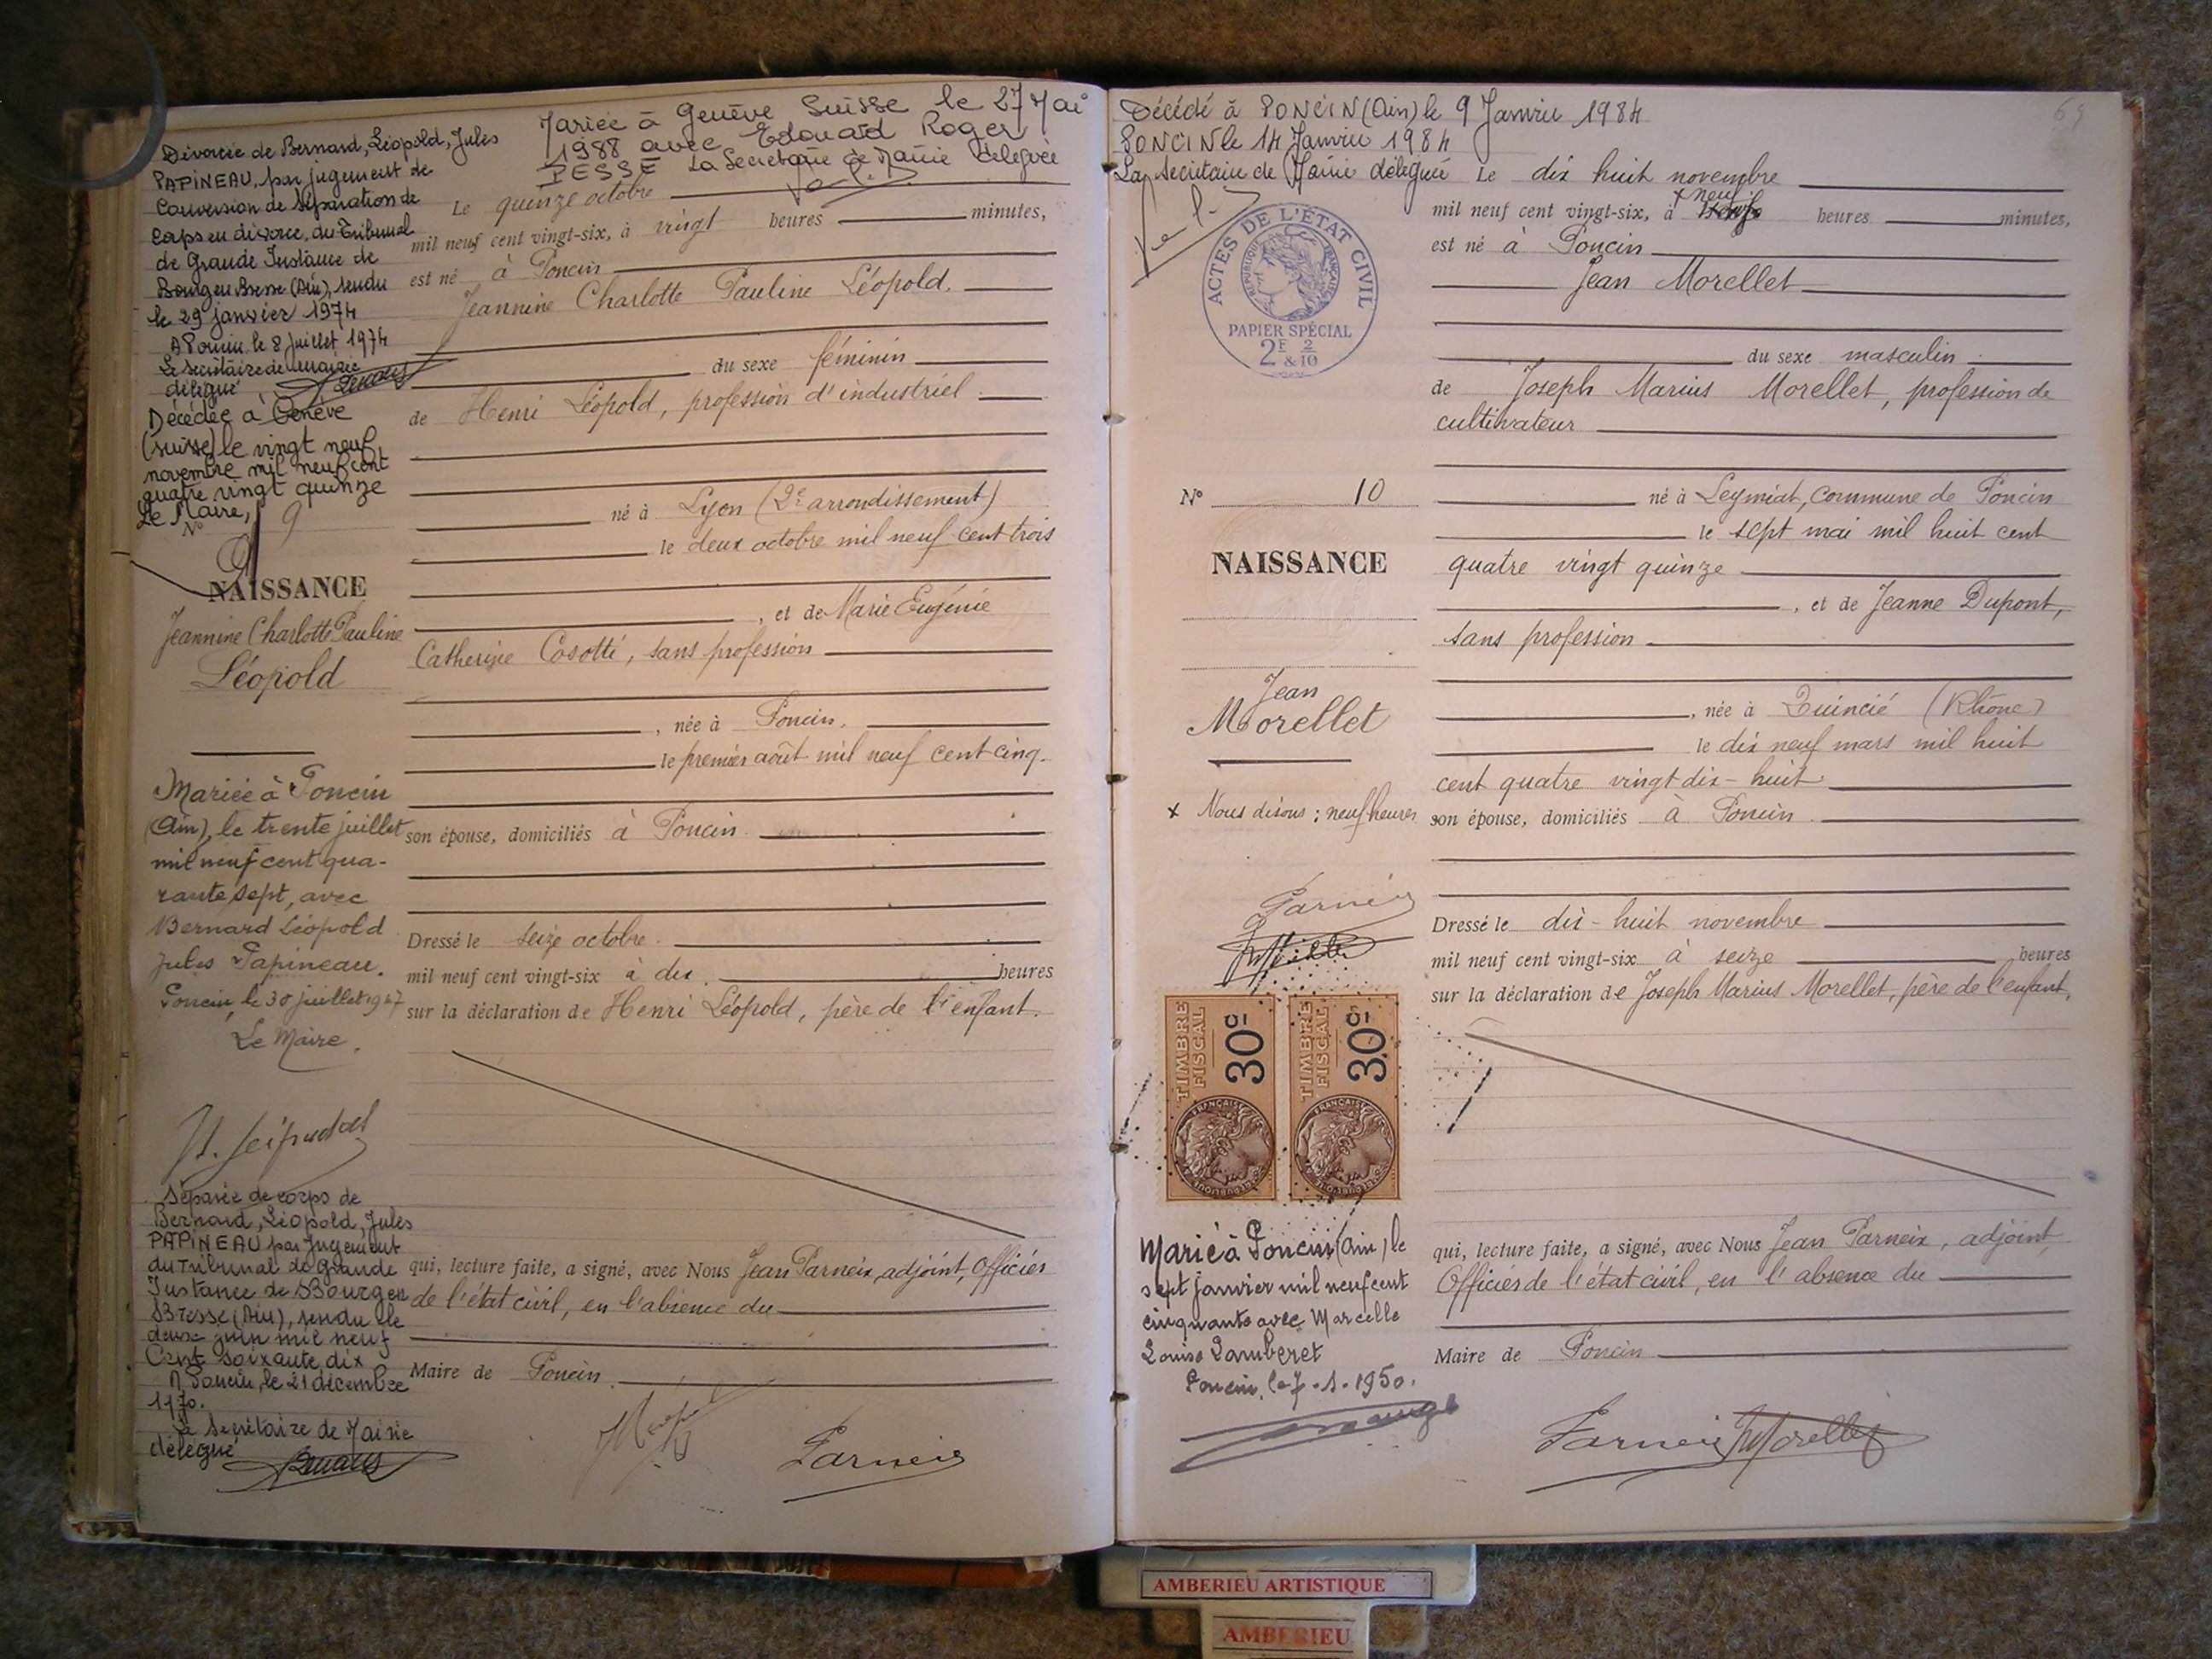 Divorcée de Bernard, Léopold, Jules
PAPINEAU, par jugement de
Conversion de Séparation de
Corps en divorce, du Tribunal
de Grande Instance de
Bourg en Bresse (Ain), rendu
le 29 janvier 1974
A Poncin le 8 juillet 1974
Le secrétaire de mairie
délégué
Décédée à Genève
(Suisse) le vingt neuf
novembre mil neuf cent
quatre vingt quinze
Le Maire,
N° 9
NAISSANCE
Jeannine Charlotte Pauline
Léopold
Mariée à Poncin
(Ain), le trente juillet
mil neuf cent qua-
rante sept, avec
Bernard Léopold
Jules Papineau.
Poncin, le 30 juillet 1947
Le Maire.
Séparée de corps de
Bernard, Léopold, Jules
PAPINEAU par Jugement
du Tribunal de Grande
Instance de Bourg en
Bresse (Ain), rendu le
deux juin mil neuf
Cent soixante dix
A Poncin, le 21 décembre
1970.
Le Secrétaire de Mairie
délégué
Mariée à Genève Suisse le 27 Mai
1988 avec Edouard Roger
PESSE La Secretaire de Mairie deleguée
Le quinze octobre
mil neuf cent vingt-six, à vingt heures minutes,
est né à Poncin
Jeannine Charlotte Pauline Léopold.
du sexe féminin
de Henri Léopold, profession d'industriel
né à Lyon (2e arrondissement)
le deux octobre mil neuf cent trois
, et de Marie Eugénie
Catherine Cosotti, sans profession
, née à Poncin.
le premier août mil neuf cent cinq.
son épouse, domiciliés à Poncin
Dressé le seize octobre
mil neuf cent vingt-six à dix heures
sur la déclaration de Henri Léopold, père de l'enfant.
qui, lecture faite, a signé, avec Nous Jean Parneix, adjoint, Officier
de l'état civil, en l'absence du
Maire de Poncin
Parneix
Décédé à PONCIN (Ain) le 9 Janvier 1984
PONCIN le 14 Janvier 1984
La Secrétaire de Mairie déléguée
69
ACTES DE L'ÉTAT CIVIL
RÉPUBLIQUE FRANÇAISE
PAPIER SPÉCIAL
2F 2
& 10
N° 10
NAISSANCE
Jean
Morellet
x Nous disons : neuf heures
Parneix
TIMBRE FISCAL 30c
TIMBRE FISCAL 30c
Marié à Poncin (Ain) le
sept janvier mil neuf cent
cinquante avec Marcelle
Louise Lamberet
Poncin, le 7.1.1950.
Le dix huit novembre
x neuf
mil neuf cent vingt-six, à heures minutes,
est né à Poncin
Jean Morellet
du sexe masculin
de Joseph Marius Morellet, profession de
cultivateur
né à Leymiat, Commune de Poncin
le sept mai mil huit cent
quatre vingt quinze
, et de Jeanne Dupont,
sans profession
, née à Quincié (Rhône)
le dix neuf mars mil huit
cent quatre vingt dix-huit
son épouse, domiciliés à Poncin
Dressé le dix-huit novembre
mil neuf cent vingt-six à seize heures
sur la déclaration de Joseph Marius Morellet, père de l'enfant,
qui, lecture faite, a signé, avec Nous Jean Parneix, adjoint,
Officier de l'état civil, en l'absence du
Maire de Poncin
Parneix Morellet
AMBERIEU ARTISTIQUE
AMBERIEU